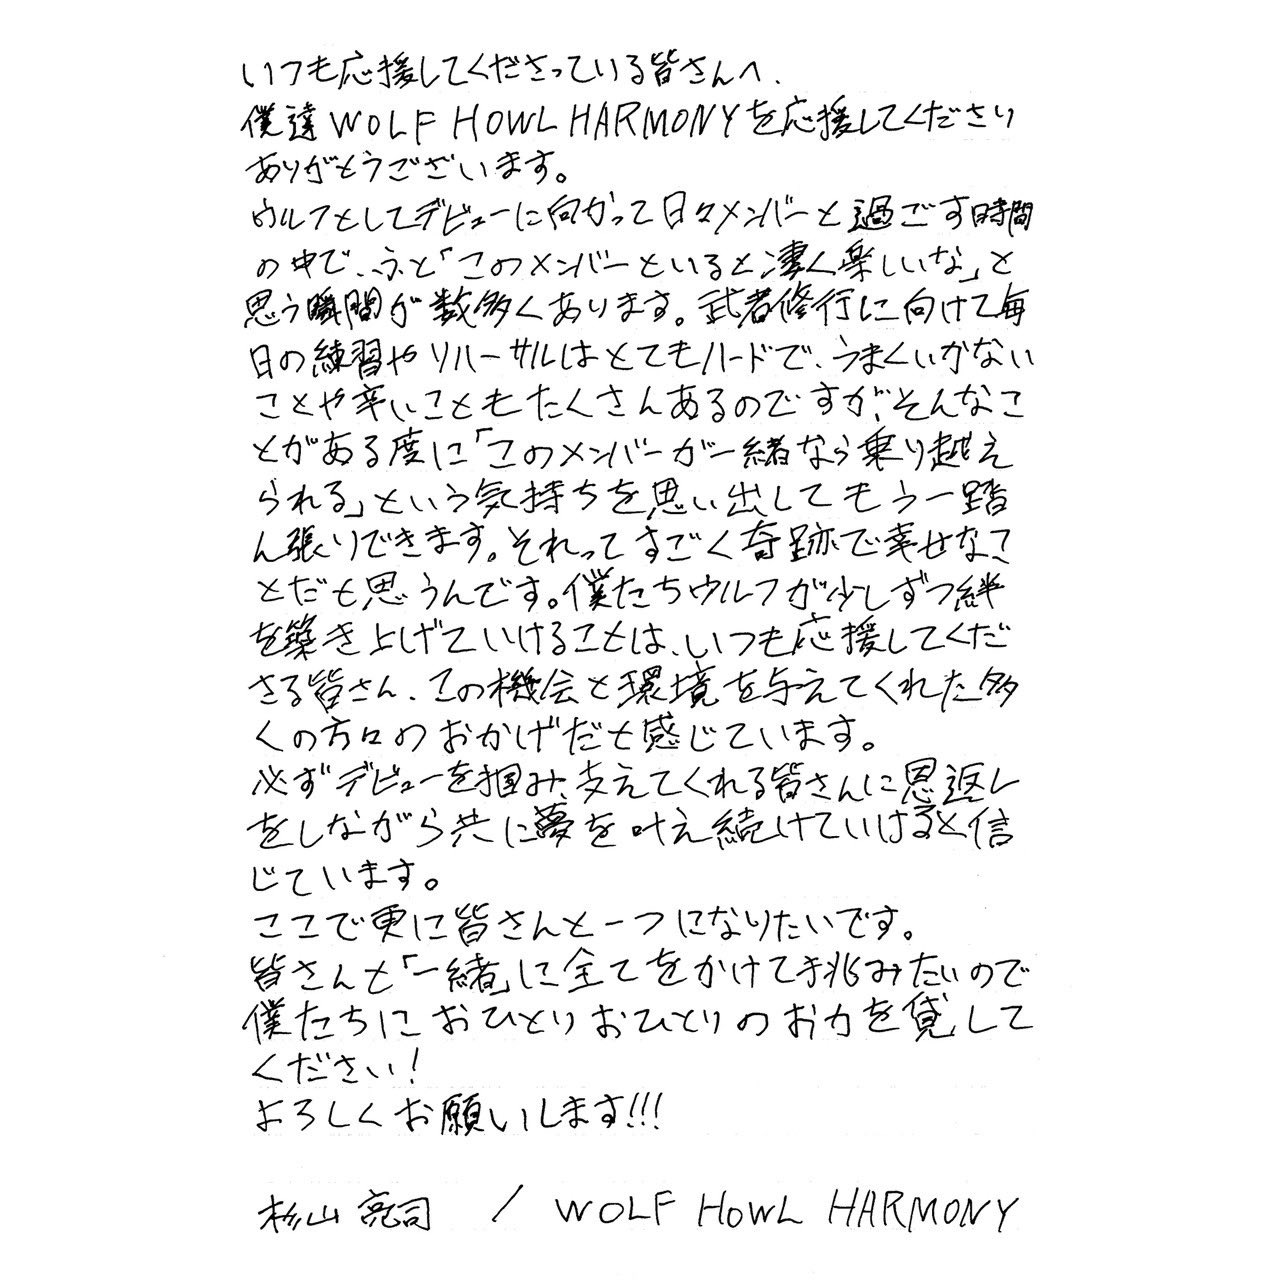 いつも応援してくださっている皆さんへ.
僕達WOLF HOWL HARMONYを応援してくださり
ありがとうございます。
ウルフとしてデビューに向かって日々メンバーと過ごす時間
の中で、ふと「このメンバーといると凄く楽しいな」と
思う瞬間が数多くあります。武者修行に向けて毎
日の練習やリハーサルはとてもハードで、うまくいかない
ことや辛いこともたくさんあるのですが、そんなこ
とがある度に「このメンバーが一緒なら乗り越え
られる」という気持ちを思い出してもう一踏
ん張りできます。それってすごく奇跡で幸せなこ
とだも思うんです。僕たちウルフが少しずつ絆
を築き上げていけることは、いつも応援してくだ
さる皆さん、この機会と環境を与えてくれた多
くの方々のおかげだと感じています。
必ずデビューを掴み、支えてくれる皆さんに恩返し
をしながら共に夢を叶え続けていけると信
じています。
ここで更に皆さんと一つになりたいです。
皆さんと「一緒」に全てをかけて挑みたいので
僕たちにおひとりおひとりのお力を貸して
ください!
よろしくお願いします!!!
杉山亮司 / WOLF HOWL HARMONY